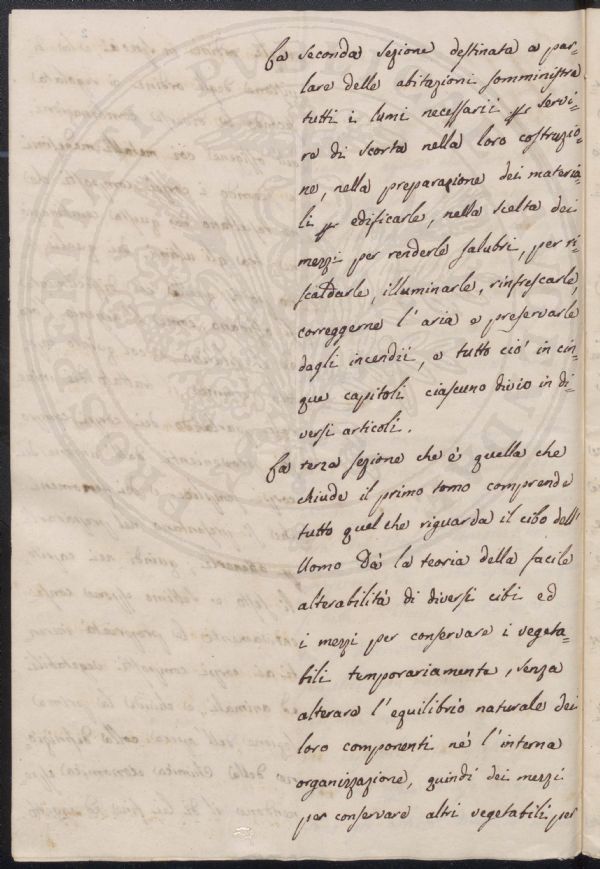 La seconda sezione destinata a par=
lare delle abitazioni somministra
tutti i lumi necessarii pr servi=
re di scorta nella loro costruzio=
ne, nella preparazione dei materia=
li pr edificarle, nella scelta dei
mezzi per renderle salubri, per ri=
scaldarle, illuminarle, rinfrescarle,
correggerne l'aria e preservarle
dagli incendii, e tutto ciò in cin=
que capitoli ciascuno divio in di=
versi articoli.
La terza sezione che è quella che
chiude il primo tomo comprende
tutto quel che riguarda il cibo dell'
Uomo Dà la teoria della facile
alterabilità di diversi cibi ed
i mezzi per conservare i vegeta=
bili temporariamente, senza
alterare l'equilibrio naturale dei
loro componenti nè l'interna
organizzazione, quindi dei mezzi
per conservare altri vegetabili per